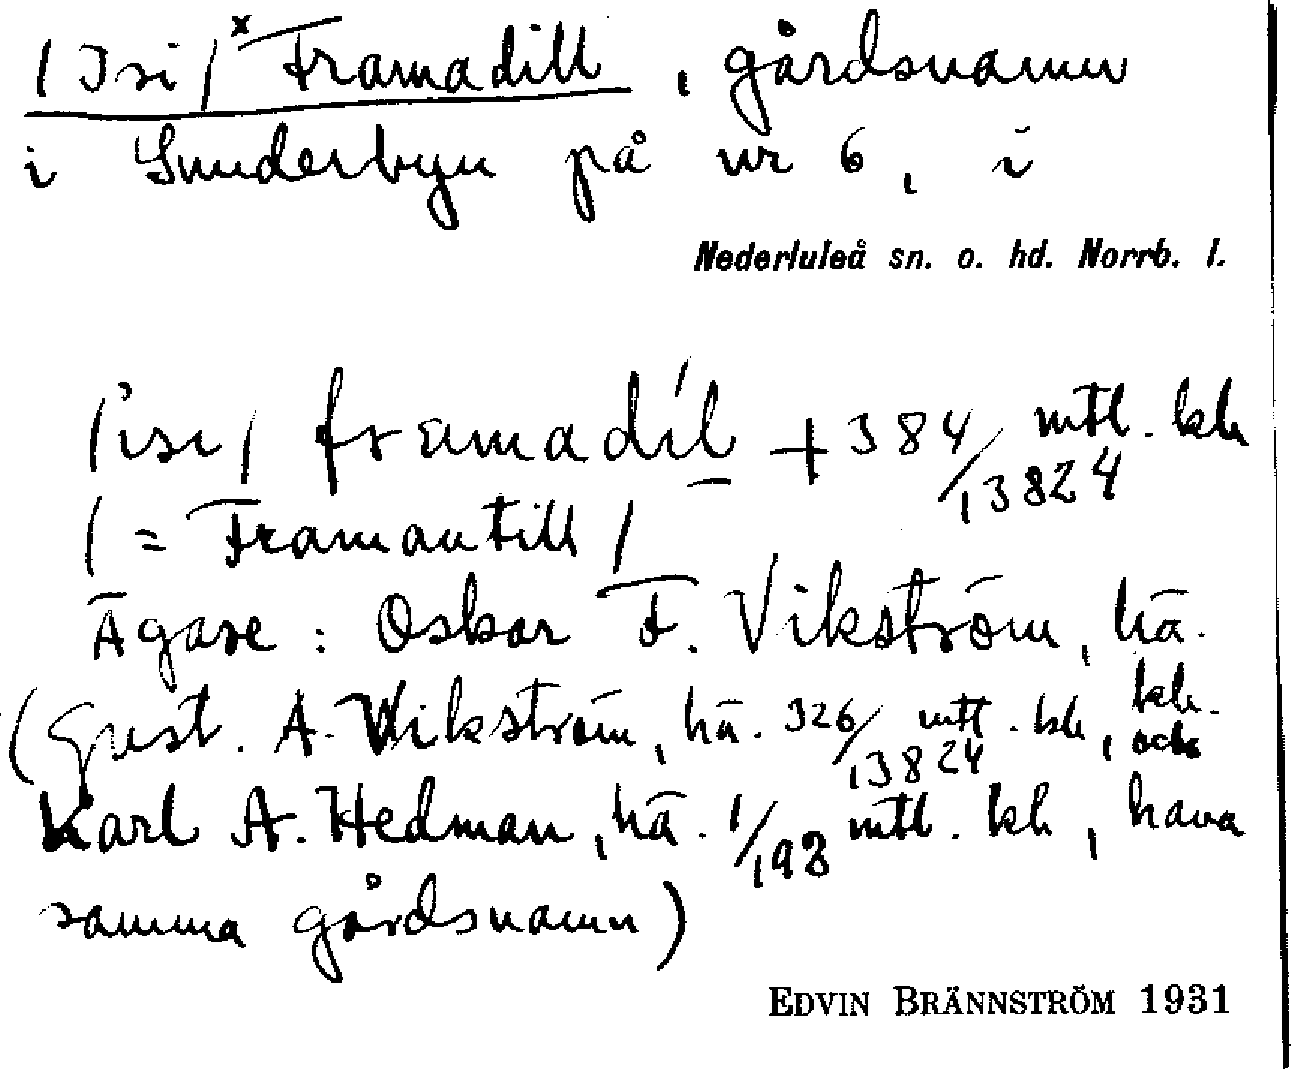 (Isi) ˣFramadill, gårdsnamn
i Sunderbyn på nr 6, i
Nederluleå sn. o. hd. Norrb. l.
(isi) framadil + 384/13824 mtl. kh
(= Framantill)
Ägare: Oskar F. Vikström, hä.
(Gust. A. Wikström, hä. 326/13824 mtl. kh, kh. och
Karl A. Hedman, hä. 1/198 mtl. kh, hava
samma gårdsnamn)
EDVIN BRÄNNSTRÖM 1931